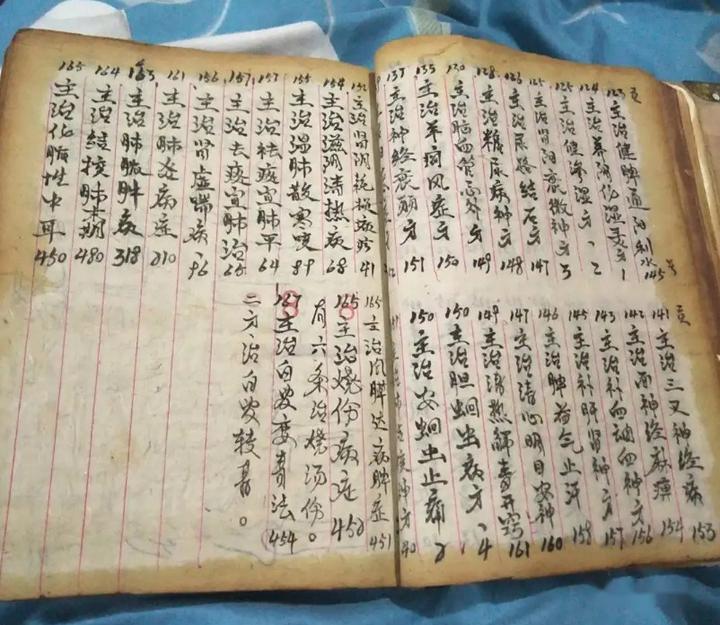 页
123 主治健脾通阳利水 145 号
124 主治养阴化湿 1
125 主治健渗湿方 12
125 主治肾阳衰微神方 3
126 主治尿路结石方 147
128 主治糖尿病神方 148
130 主治脑血管意外方 149
135 主治羊痫风症方 150
137 主治神经衰弱方 151
页
141 主治三叉神经痛 153
142 主治面神经麻痹 154
143 主治补血调血神方 156
145 主治补肝肾神方 157
146 主治脾益气止汗 158
147 主治清心明目安神 160
149 主治清热解毒开窍 161
150 主治胆蛔虫病方 14
150 主治安蛔虫止痛 2
152 主治肾阴 41
154 主治滋阴清热病 68
155 主治温肺散寒咳 89
157 主治祛痰宣肺平 64
157 主治去痰宣肺治 65
156 主治肾虚喘病 96
161 主治肺炎病症 210
163 主治肺脓肿病 318
164 主治结核肺末期 480
165 主治化脓性中耳 450
165 主治 病脾症 451
165 主治烧伤病症 452
有六条治烧汤伤。
167 主治白发变青法 454
二方治白发转青。